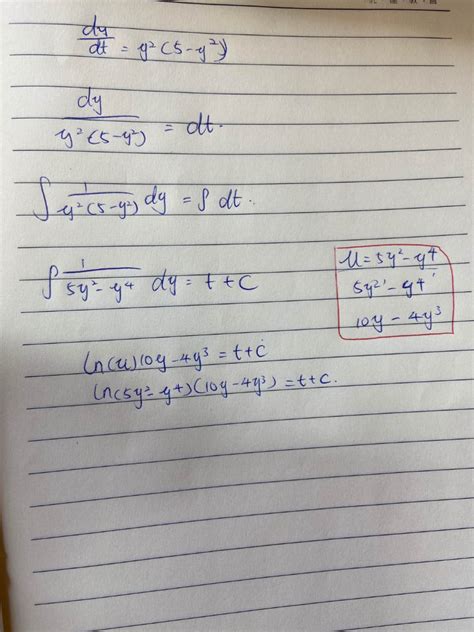 dy/dt = y²(5-y²)
dy/y²(5-y²) = dt.
∫ 1/y²(5-y²) dy = ∫ dt.
∫ 1/5y²-y⁴ dy = t + C
u = 5y²-y⁴
5y²' - y⁴'
10y - 4y³
ln(u)10y-4y³ = t+c
ln(5y²-y⁴)(10y-4y³) = t+c.